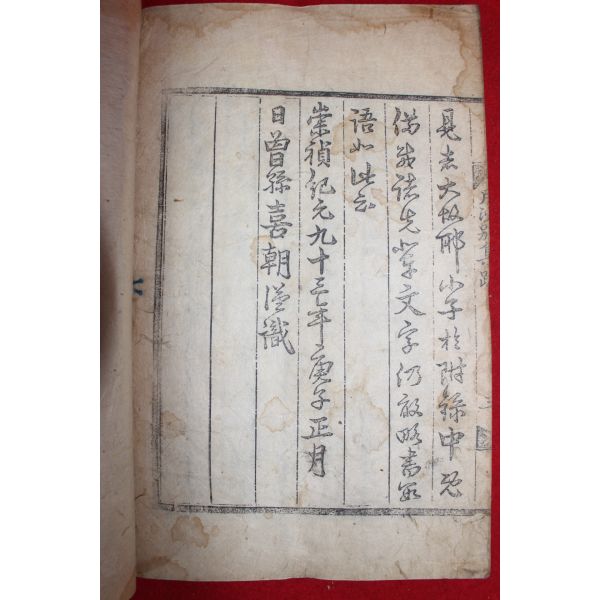 見志大故耶小子於附錄中既
備載諸先輩文字仍敢略書數
語如此云
崇禎紀元九十三年庚子正月
日曾孫喜朝謹識